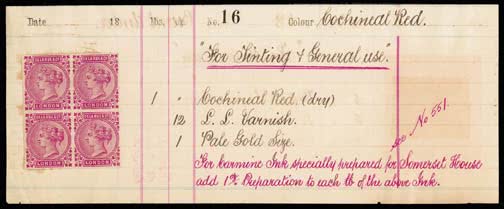 Date 18 No. No. 16 Colour Cochineal Red.
"For Tinting & General use"
1 " Cochineal Red (dry)
12 L. L. Varnish.
1 Pale Gold Size.
see No 551.
For Carmine Ink specially prepared for Somerset House
add 1% Preparation to each lb of the above Ink.
LONDON LONDON
LONDON LONDON